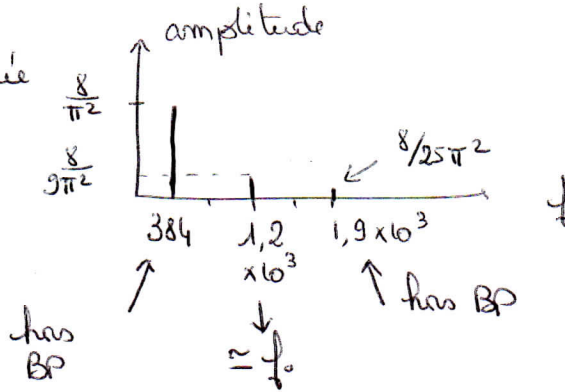 amplitude
8/π²
8/9π²
8/25π²
384
1,2 ×10³
1,9 ×10³
f
hors BP
≃ f₀
hors BP